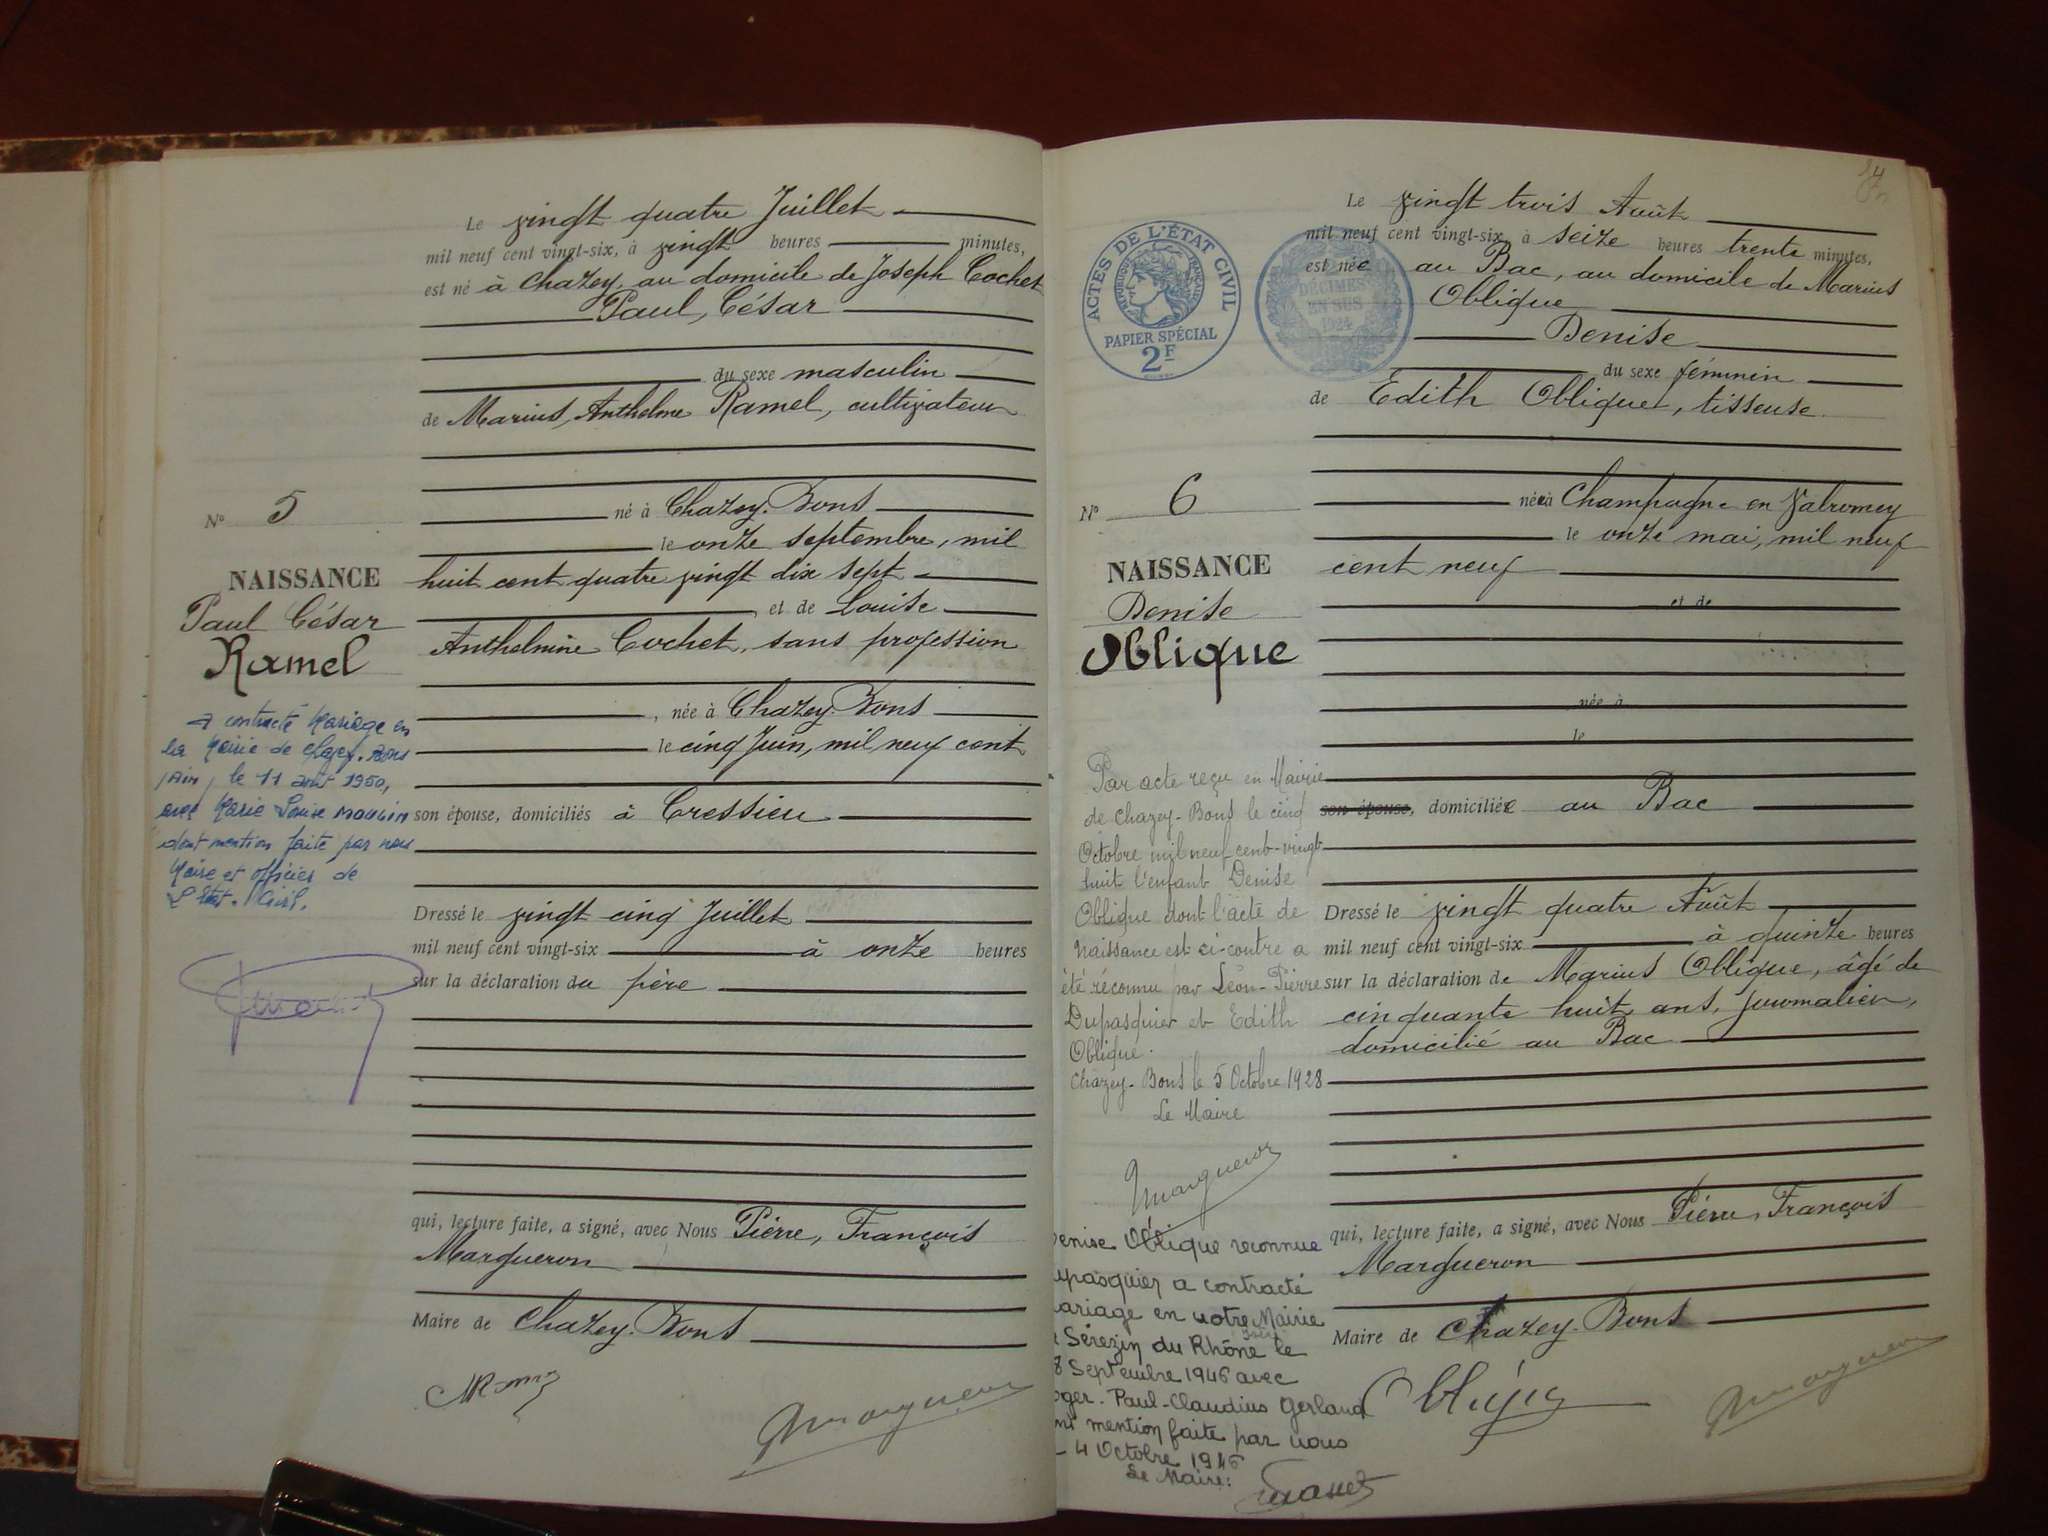 Le vingt quatre Juillet
mil neuf cent vingt-six, à vingt heures minutes,
est né à Chazey, au domicile de Joseph Cochet
Paul, César
du sexe masculin
de Marius, Anthelme Ramel, cultivateur
né à Chazey-Bons
le onze septembre, mil
huit cent quatre vingt dix sept
et de Louise
Anthelmine Cochet, sans profession
, née à Chazey-Bons
le cinq Juin, mil neuf cent
son épouse, domiciliés à Cressieu
Dressé le vingt cinq Juillet
mil neuf cent vingt-six à onze heures
sur la déclaration du père
qui, lecture faite, a signé, avec Nous Pierre, François
Margueron
Maire de Chazey-Bons
Margueron
N° 5
NAISSANCE
Paul César
Ramel
A contracté Mariage en
la Mairie de Chazey-Bons
(Ain), le 11 août 1950,
avec Marie Louise
dont mention faite par nous
Maire et officier de
L'Etat-Civil.
Le vingt trois Août
mil neuf cent vingt-six, à seize heures trente minutes,
est née au Bac, au domicile de Marius
Oblique
Denise
du sexe féminin
de Edith Oblique, tisseuse
née à Champagne en Valromey
le onze mai, mil neuf
cent neuf
et de
, née à
le
son épouse, domiciliée au Bac
Dressé le vingt quatre Août
mil neuf cent vingt-six à quinze heures
sur la déclaration de Marius Oblique, âgé de
cinquante huit ans, journalier,
domicilié au Bac
qui, lecture faite, a signé, avec Nous Pierre, François
Margueron
Maire de Chazey-Bons
Oblique
Margueron
ACTES DE L'ÉTAT CIVIL
RÉPUBLIQUE FRANÇAISE
PAPIER SPÉCIAL
2F
DÉCIMES
EN SUS
1924
N° 6
NAISSANCE
Denise
Oblique
Par acte reçu en Mairie
de Chazey-Bons le cinq
Octobre mil neuf cent-vingt
huit l'enfant Denise
Oblique dont l'acte de
naissance est ci-contre a
été reconnu par Léon-Pierre
Dupasquier et Edith
Oblique.
Chazey-Bons le 5 Octobre 1928
Le Maire
Margueron
enise Oblique reconnue
upasquier a contracté
ariage en notre Mairie
Sérézin du Rhône le
8 Septembre 1946 avec
oger-Paul-Claudius Gerland
mention faite par nous
4 Octobre 1946
Le Maire: